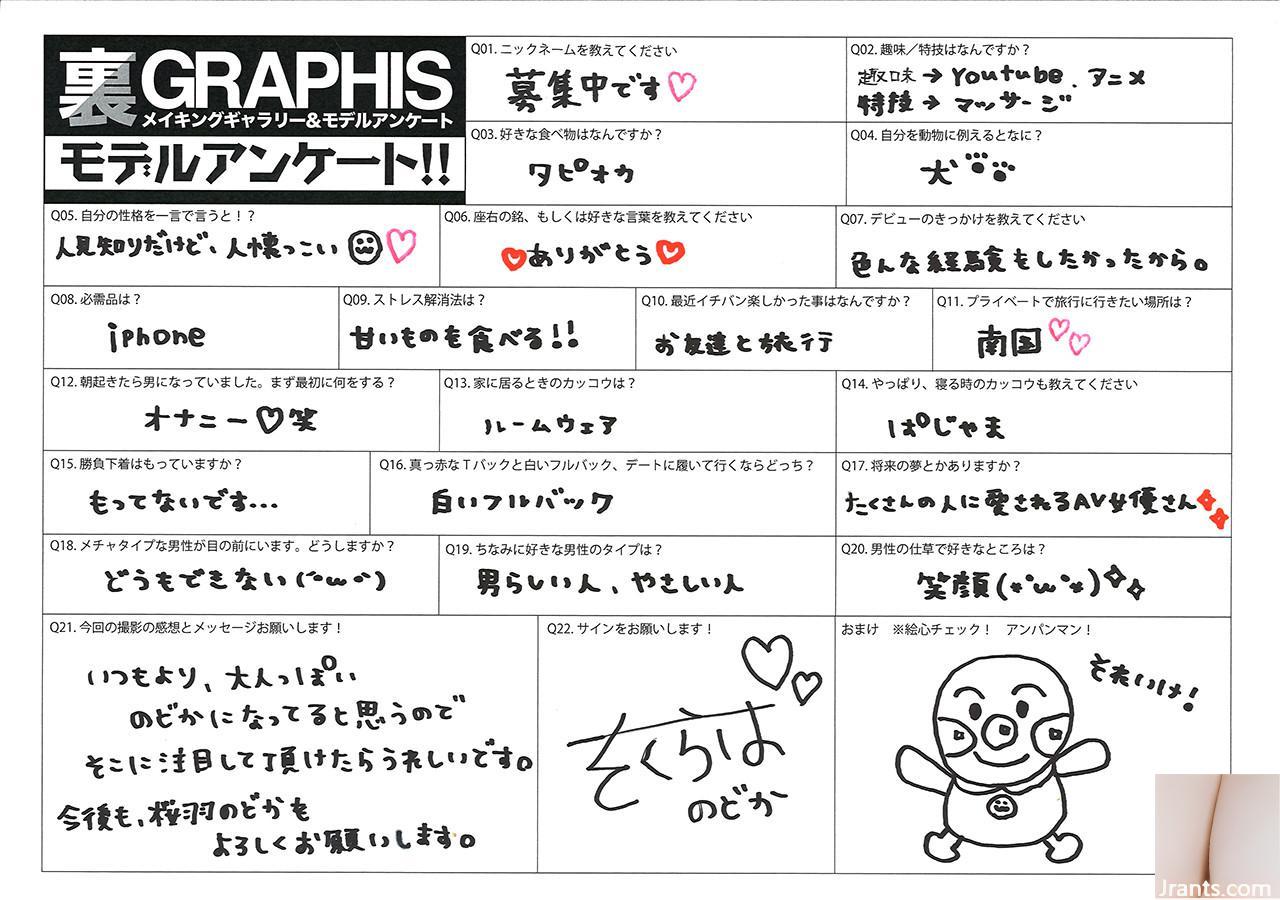 裏GRAPHIS
メイキングギャラリー&モデルアンケート
モデルアンケート!!
Q01. ニックネームを教えてください
募集中です♡
Q02. 趣味／特技はなんですか？
趣味→Youtube、アニメ
特技→マッサージ
Q03. 好きな食べ物はなんですか？
タピオカ
Q04. 自分を動物に例えるとなに？
犬
Q05. 自分の性格を一言で言うと！？
人見知りだけど、人懐っこい♡
Q06. 座右の銘、もしくは好きな言葉を教えてください
♡ありがとう♡
Q07. デビューのきっかけを教えてください
色んな経験をしたかったから。
Q08. 必需品は？
iphone
Q09. ストレス解消法は？
甘いものを食べる!!
Q10. 最近イチバン楽しかった事はなんですか？
お友達と旅行
Q11. プライベートで旅行に行きたい場所は？
南国♡♡
Q12. 朝起きたら男になっていました。まず最初に何をする？
オナニー♡笑
Q13. 家に居るときのカッコウは？
ルームウェア
Q14. やっぱり、寝る時のカッコウも教えてください
ぱじゃま
Q15. 勝負下着はもっていますか？
もってないです...
Q16. 真っ赤なTバックと白いフルバック、デートに履いて行くならどっち？
白いフルバック
Q17. 将来の夢とかありますか？
たくさんの人に愛されるAV女優さん
Q18. メチャタイプな男性が目の前にいます。どうしますか？
どうもできない(´・ω・`)
Q19. ちなみに好きな男性のタイプは？
男らしい人、やさしい人
Q20. 男性の仕草で好きなところは？
笑顔(*'ω'*)✧✧
Q21. 今回の撮影の感想とメッセージお願いします！
いつもより、大人っぽい
のどかになってると思うので
そこに注目して頂けたらうれしいです。
今後も、桜羽のどかも
よろしくお願いします。
Q22. サインをお願いします！
さくらは
のどか
おまけ　※絵心チェック！　アンパンマン！
それいけ!
Jrants.com